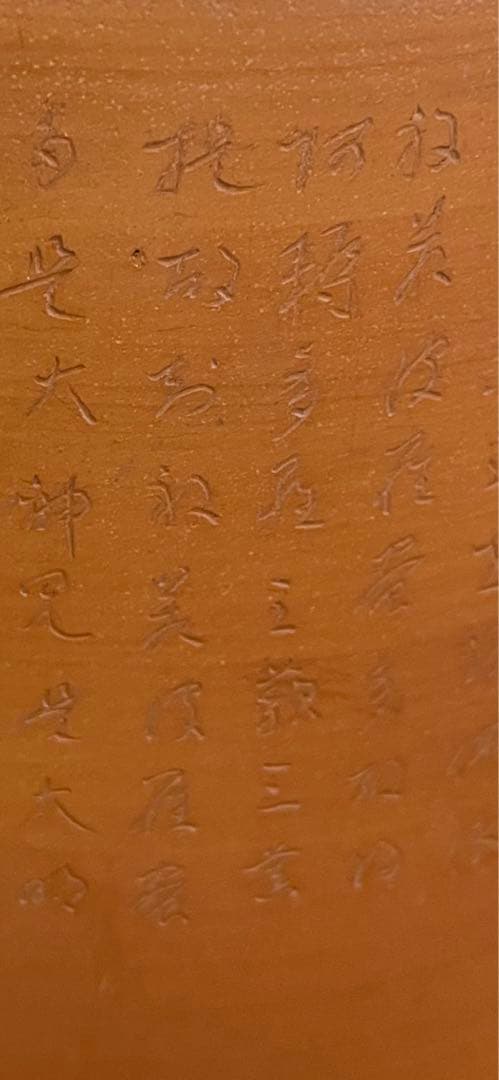 般若波羅蜜多故得
阿耨多羅三藐三菩
提故知般若波羅蜜
多是大神咒是大明